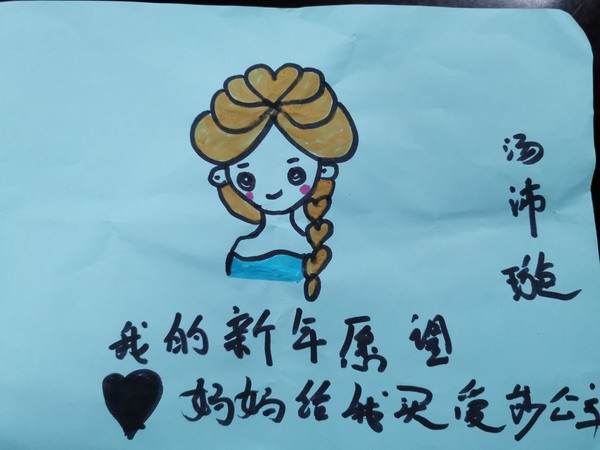 汤沛璇
我的新年愿望
妈妈给我买爱莎公主